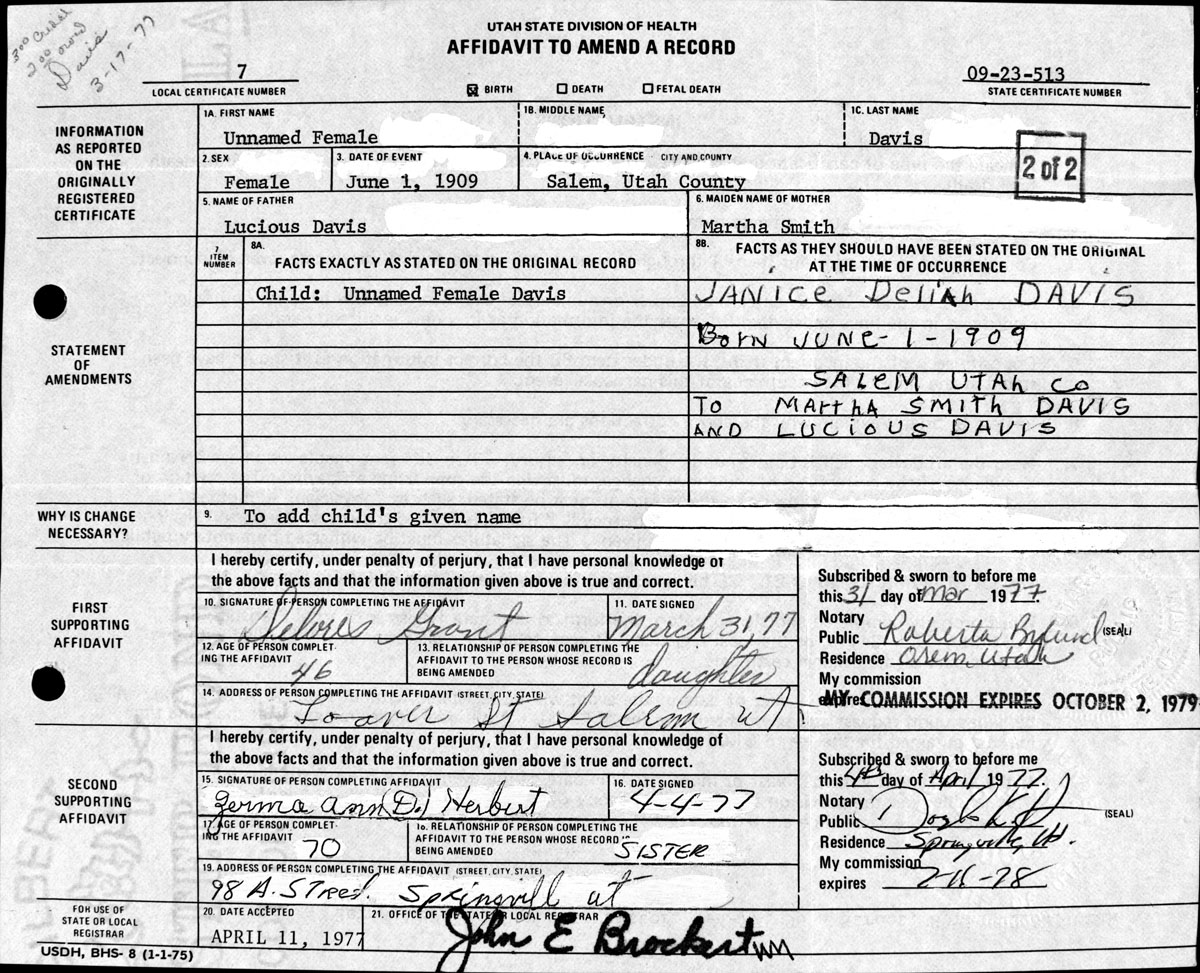 300 Credit
200 Word
Davis
3-17-77
UTAH STATE DIVISION OF HEALTH
AFFIDAVIT TO AMEND A RECORD
7
LOCAL CERTIFICATE NUMBER
☒ BIRTH ☐ DEATH ☐ FETAL DEATH
09-23-513
STATE CERTIFICATE NUMBER
INFORMATION
AS REPORTED
ON THE
ORIGINALLY
REGISTERED
CERTIFICATE
1A. FIRST NAME
Unnamed Female
1B. MIDDLE NAME
1C. LAST NAME
Davis
2. SEX
Female
3. DATE OF EVENT
June 1, 1909
4. PLACE OF OCCURRENCE CITY AND COUNTY
Salem, Utah County
2 of 2
5. NAME OF FATHER
Lucious Davis
6. MAIDEN NAME OF MOTHER
Martha Smith
STATEMENT
OF
AMENDMENTS
7
ITEM
NUMBER
8A.
FACTS EXACTLY AS STATED ON THE ORIGINAL RECORD
Child: Unnamed Female Davis
8B. FACTS AS THEY SHOULD HAVE BEEN STATED ON THE ORIGINAL
AT THE TIME OF OCCURRENCE
JANICE DeliAh DAVIS
BORN JUNE-1-1909
SALEM UTAH CO
TO MARthA SMITH DAVIS
AND LUCIOUS DAVIS
WHY IS CHANGE
NECESSARY?
9. To add child's given name
FIRST
SUPPORTING
AFFIDAVIT
I hereby certify, under penalty of perjury, that I have personal knowledge of
the above facts and that the information given above is true and correct.
10. SIGNATURE OF PERSON COMPLETING THE AFFIDAVIT
Delores Grant
11. DATE SIGNED
March 31, 77
12. AGE OF PERSON COMPLET-
ING THE AFFIDAVIT
46
13. RELATIONSHIP OF PERSON COMPLETING THE
AFFIDAVIT TO THE PERSON WHOSE RECORD IS
BEING AMENDED
daughter
14. ADDRESS OF PERSON COMPLETING THE AFFIDAVIT (STREET, CITY, STATE)
Loaver St Salem ut.
Subscribed & sworn to before me
this 31 day of Mar 1977.
Notary
Public Roberta Bylund (SEAL)
Residence Orem, Utah
My commission
expires MY COMMISSION EXPIRES OCTOBER 2, 1979
SECOND
SUPPORTING
AFFIDAVIT
I hereby certify, under penalty of perjury, that I have personal knowledge of
the above facts and that the information given above is true and correct.
15. SIGNATURE OF PERSON COMPLETING AFFIDAVIT
Zerma Ann (D.) Herbert
16. DATE SIGNED
4-4-77
17. AGE OF PERSON COMPLET-
ING THE AFFIDAVIT
70
18. RELATIONSHIP OF PERSON COMPLETING THE
AFFIDAVIT TO THE PERSON WHOSE RECORD IS
BEING AMENDED
SISTER
19. ADDRESS OF PERSON COMPLETING THE AFFIDAVIT (STREET, CITY, STATE)
98 A. Street Springvill ut
Subscribed & sworn to before me
this 4th day of April 1977.
Notary
Public (SEAL)
Residence Springville, Ut.
My commission
expires 2-11-78
FOR USE OF
STATE OR LOCAL
REGISTRAR
20. DATE ACCEPTED
APRIL 11, 1977
21. OFFICE OF THE STATE OR LOCAL REGISTRAR
John E Brockert
USDH, BHS- 8 (1-1-75)